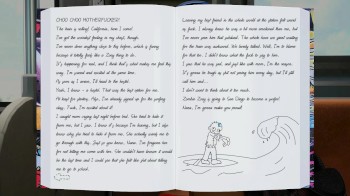 CHOO CHOO MOTHERFUCKER!
The train is rolling! California, here I come!
I've got the weirdest feeling in my chest, though.
I've never done anything close to this before, which is funny
because it totally feels like a Zonky thing to do.
It's happening for real, and I think that's what makes me feel this
way. I'm scared and excited at the same time.
As soon as I move, I'll travel to the
Yeah, I know - is hyped. That was the best option for me.
No beef for plenty. Man, I've already signed up for the surfing
class. Fuck, I'm excited about it!
I caught mom crying last night before bed. She tried to hide it
from me, but I saw. I know it's because I'm leaving, but I also
know why she tried to hide it from me. She actually wants me to
go through with this. Just as you know, Mama. I'm forgive her
for not telling me come with her. She wouldn't have known it would
be the last time and I could see that she felt like shit about telling
me to go to school.
Leaving my best friend in the whole world at the station felt weird
as fuck. I always knew he was a lot more emotional than me, but
I've never seen him that subdued. The whole time we spent waiting
for the train was awkward. We barely talked. Well, I'm to blame
for that too. I didn't know what the fuck to say to him.
I was that to way sad, and just like with mom, I'm the reason.
It's gonna be tough as shit not seeing him every day, but I'll still
call him and...
I don't want to think about it too much.
Zordon Zony is going to San Diego to become a surfer!
Mama, I'm gonna make you proud!